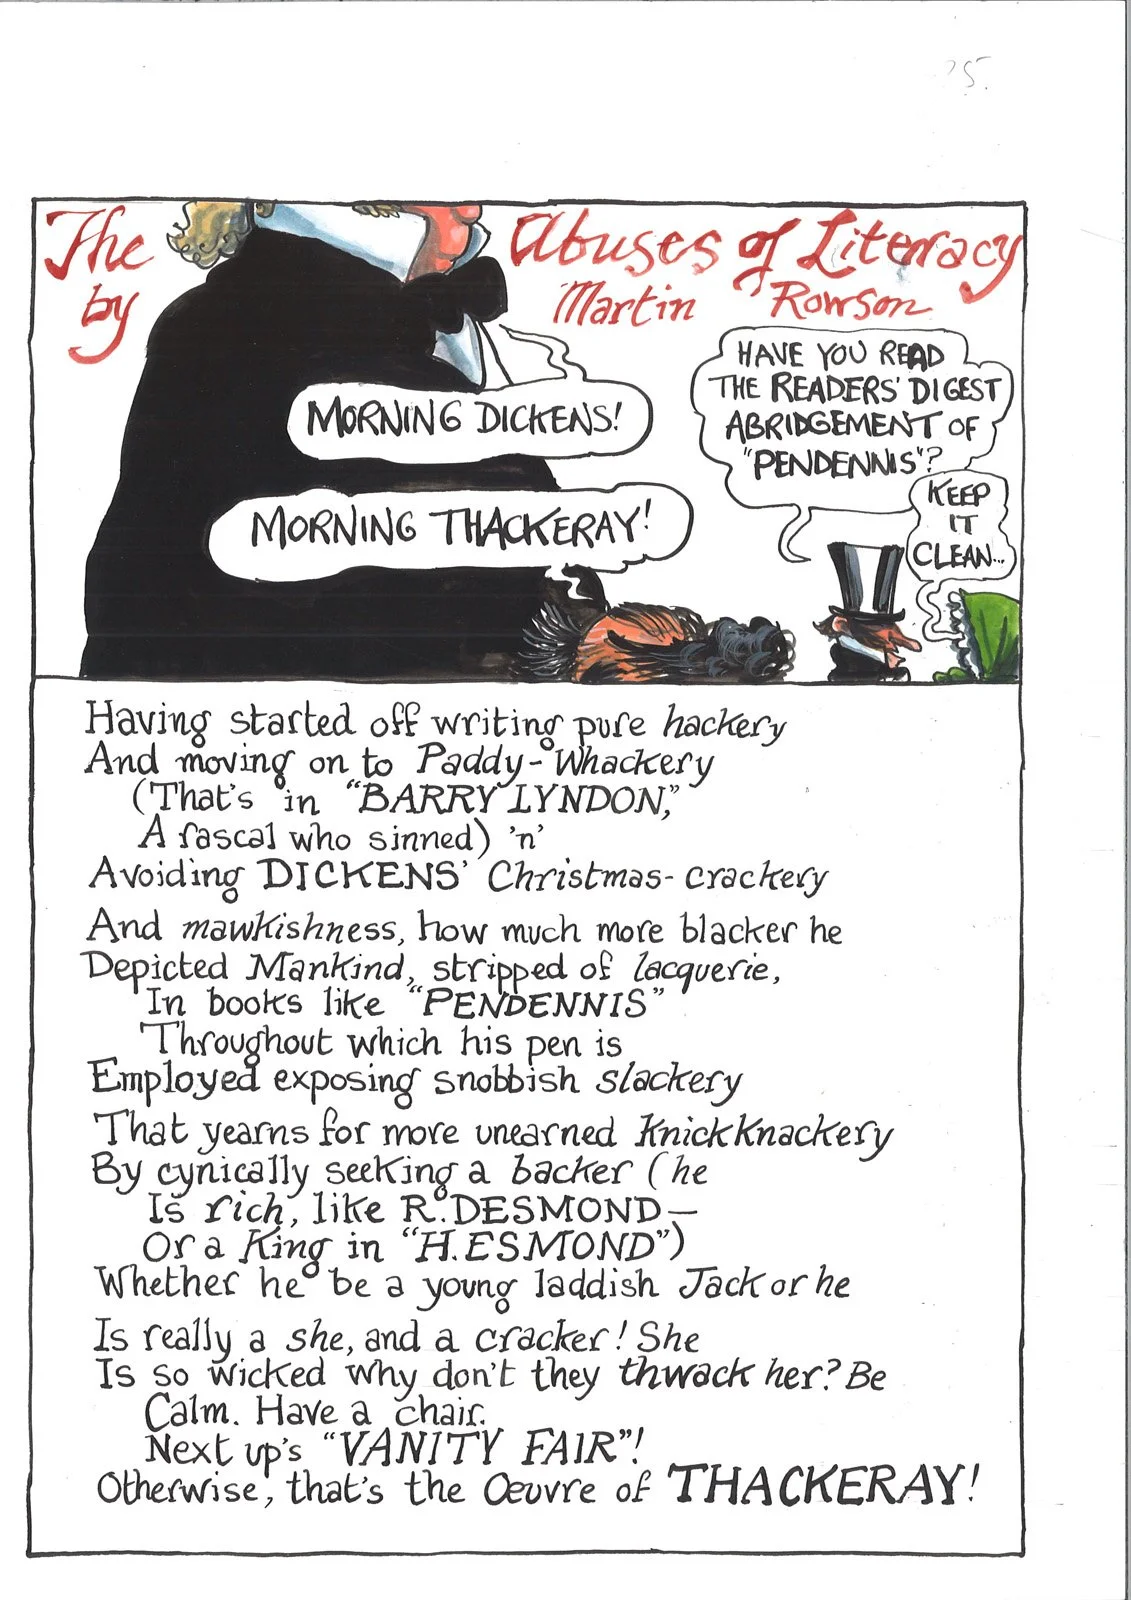 25.
The Abuses of Literacy
by Martin Rowson
MORNING DICKENS!
MORNING THACKERAY!
HAVE YOU READ
THE READERS' DIGEST
ABRIDGEMENT OF
"PENDENNIS"?
KEEP
IT
CLEAN...
Having started off writing pure hackery
And moving on to Paddy-Whackery
(That's in "BARRY LYNDON,"
A rascal who sinned) 'n'
Avoiding DICKENS' Christmas-crackery
And mawkishness, how much more blacker he
Depicted Mankind, stripped of lacquerie,
In books like "PENDENNIS"
Throughout which his pen is
Employed exposing snobbish slackery
That yearns for more unearned KnickKnackery
By cynically seeking a backer (he
Is rich, like R. DESMOND—
Or a King in "H. ESMOND")
Whether he be a young laddish Jack or he
Is really a she, and a cracker! She
Is so wicked why don't they thwack her? Be
Calm. Have a chair.
Next up's "VANITY FAIR"!
Otherwise, that's the Œuvre of THACKERAY!